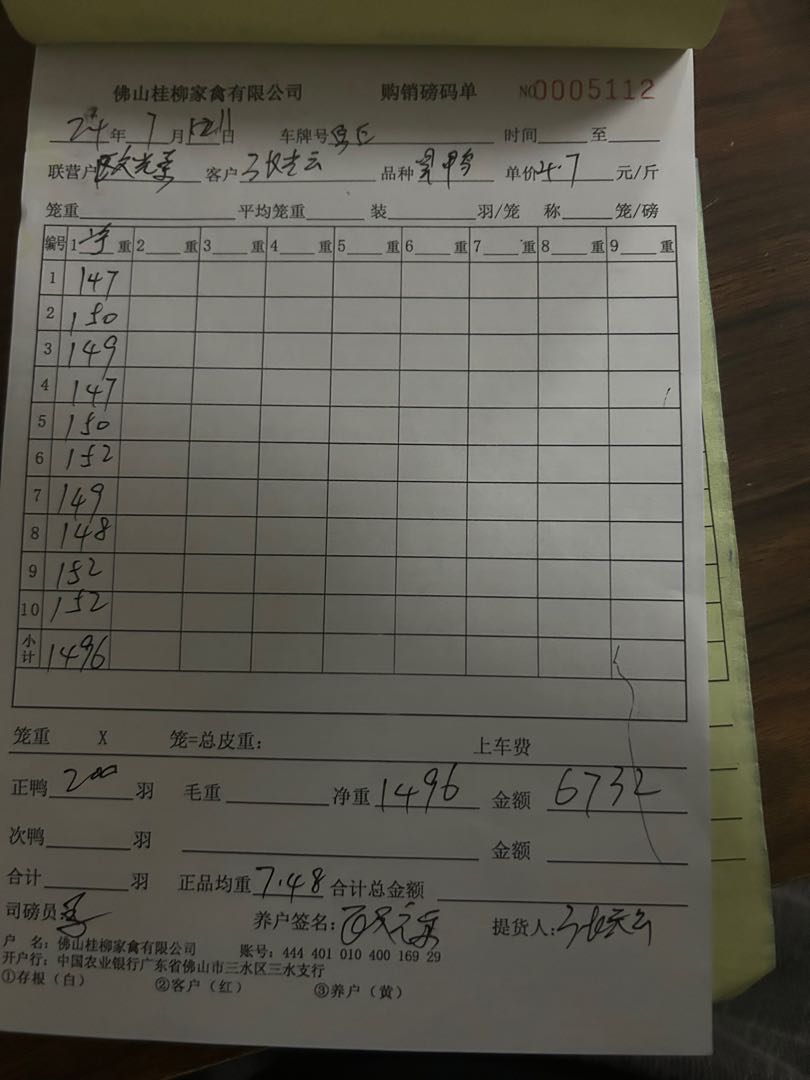 佛山桂柳家禽有限公司 购销磅码单 NO 0005112
24年7月 日 车牌号 时间 至
联营户 客户 品种 鸭 单价4.7元/斤
笼重 平均笼重 装 羽/笼 称 笼/磅
编号 1 重 2 重 3 重 4 重 5 重 6 重 7 重 8 重 9 重
1 147
2 150
3 149
4 147
5 150
6 152
7 149
8 148
9 152
10 152
小计 1496
笼重 X 笼=总皮重: 上车费
正鸭 200 羽 毛重 净重 1496 金额 6732
次鸭 羽 金额
合计 羽 正品均重 7.48 合计总金额
司磅员 养户签名: 提货人:
户 名: 佛山桂柳家禽有限公司 账号: 444 401 010 400 169 29
开户行: 中国农业银行广东省佛山市三水区三水支行
①存根(白) ②客户(红) ③养户(黄)